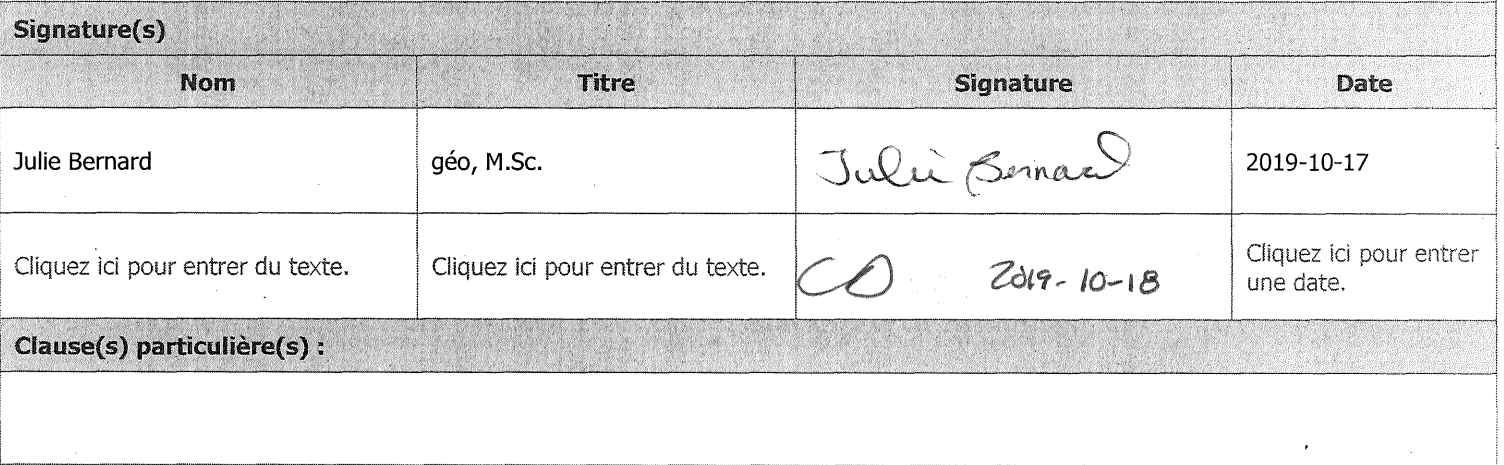 Signature(s)
Nom Titre Signature Date
Julie Bernard géo, M.Sc. Julie Bernard 2019-10-17
Cliquez ici pour entrer du texte. Cliquez ici pour entrer du texte. CD 2019-10-18 Cliquez ici pour entrer
une date.
Clause(s) particulière(s) :